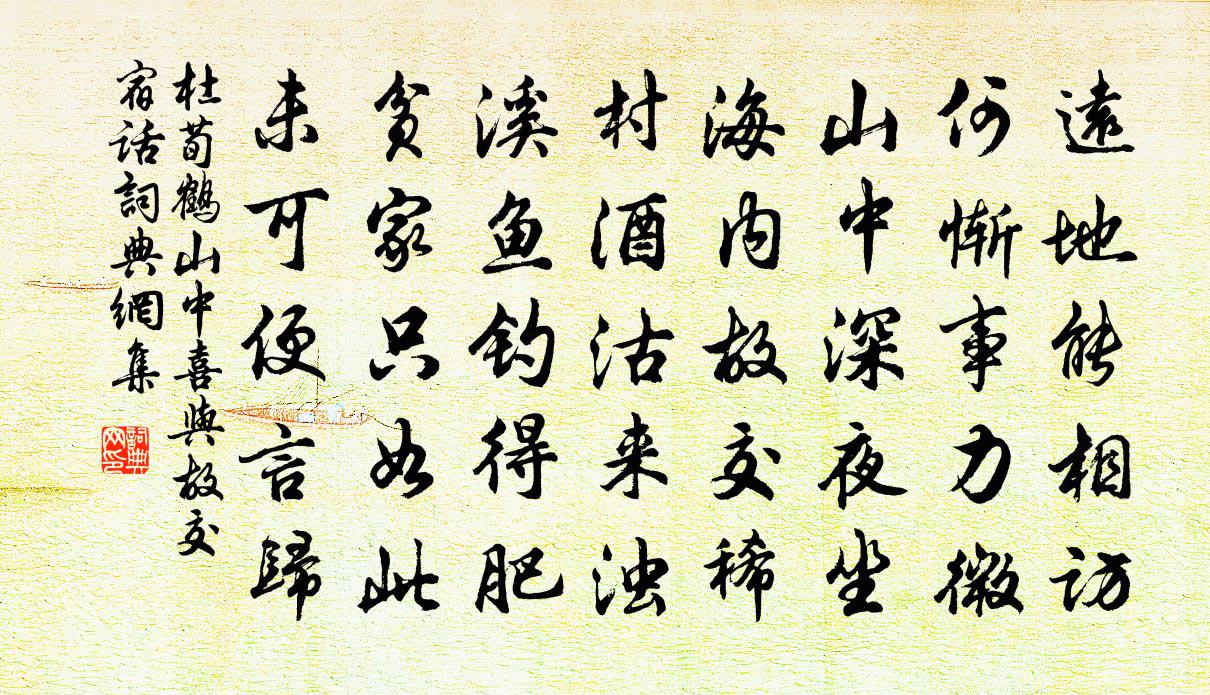 遠地能相访
何惭事力微
山中深夜坐
海内故交稀
村酒沽来浊
溪鱼钓得肥
贫家只如此
未可便言歸
杜荀鶴山中喜與故交
宿话詞典網集
詞典
网印